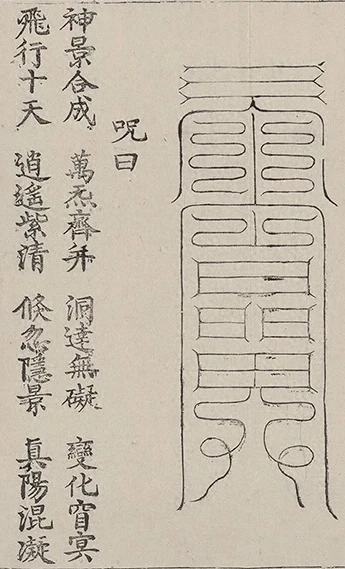 咒曰
神景合成 萬炁齊并 洞達無礙 變化窅冥
飛行十天 逍遙紫清 倐忽隱景 真陽混凝